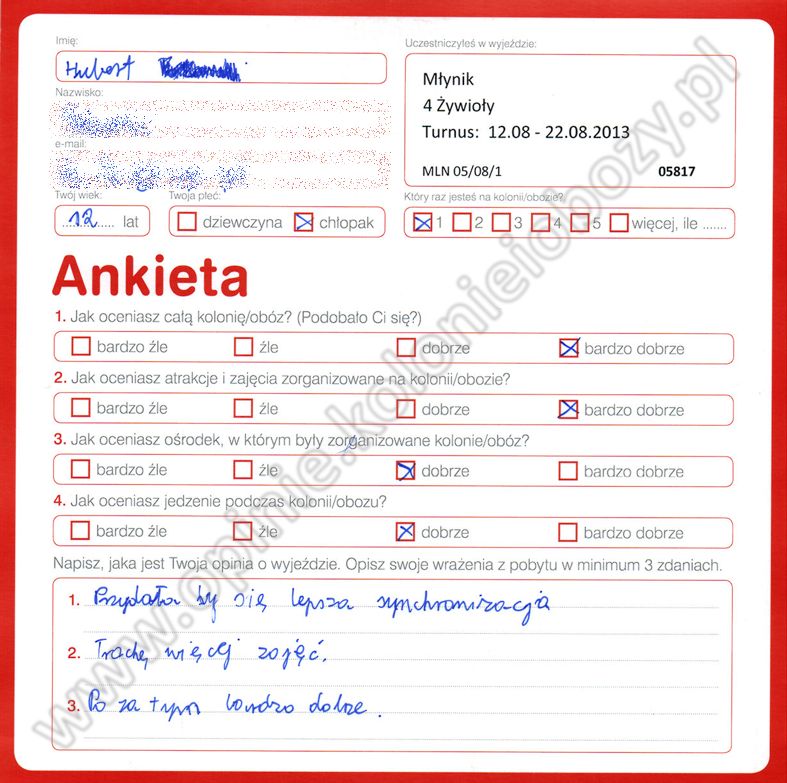 Imię:
Hubert
Uczestniczyłeś w wyjeździe:
Młynik
4 Żywioły
Turnus: 12.08 - 22.08.2013
MLN 05/08/1 05817
Nazwisko:
e-mail:
Twój wiek:
12 lat
Twoja płeć:
dziewczyna chłopak
Który raz jesteś na kolonii/obozie?
1 2 3 4 5 więcej, ile .......
Ankieta
1. Jak oceniasz całą kolonię/obóz? (Podobało Ci się?)
bardzo źle źle dobrze bardzo dobrze
2. Jak oceniasz atrakcje i zajęcia zorganizowane na kolonii/obozie?
bardzo źle źle dobrze bardzo dobrze
3. Jak oceniasz ośrodek, w którym były zorganizowane kolonie/obóz?
bardzo źle źle dobrze bardzo dobrze
4. Jak oceniasz jedzenie podczas kolonii/obozu?
bardzo źle źle dobrze bardzo dobrze
Napisz, jaka jest Twoja opinia o wyjeździe. Opisz swoje wrażenia z pobytu w minimum 3 zdaniach.
1. Przydała by się lepsza synchronizacja
2. Trochę więcej zajęć.
3. Po za tym bardzo dobrze.
www.opinie.kolonieiobozy.pl